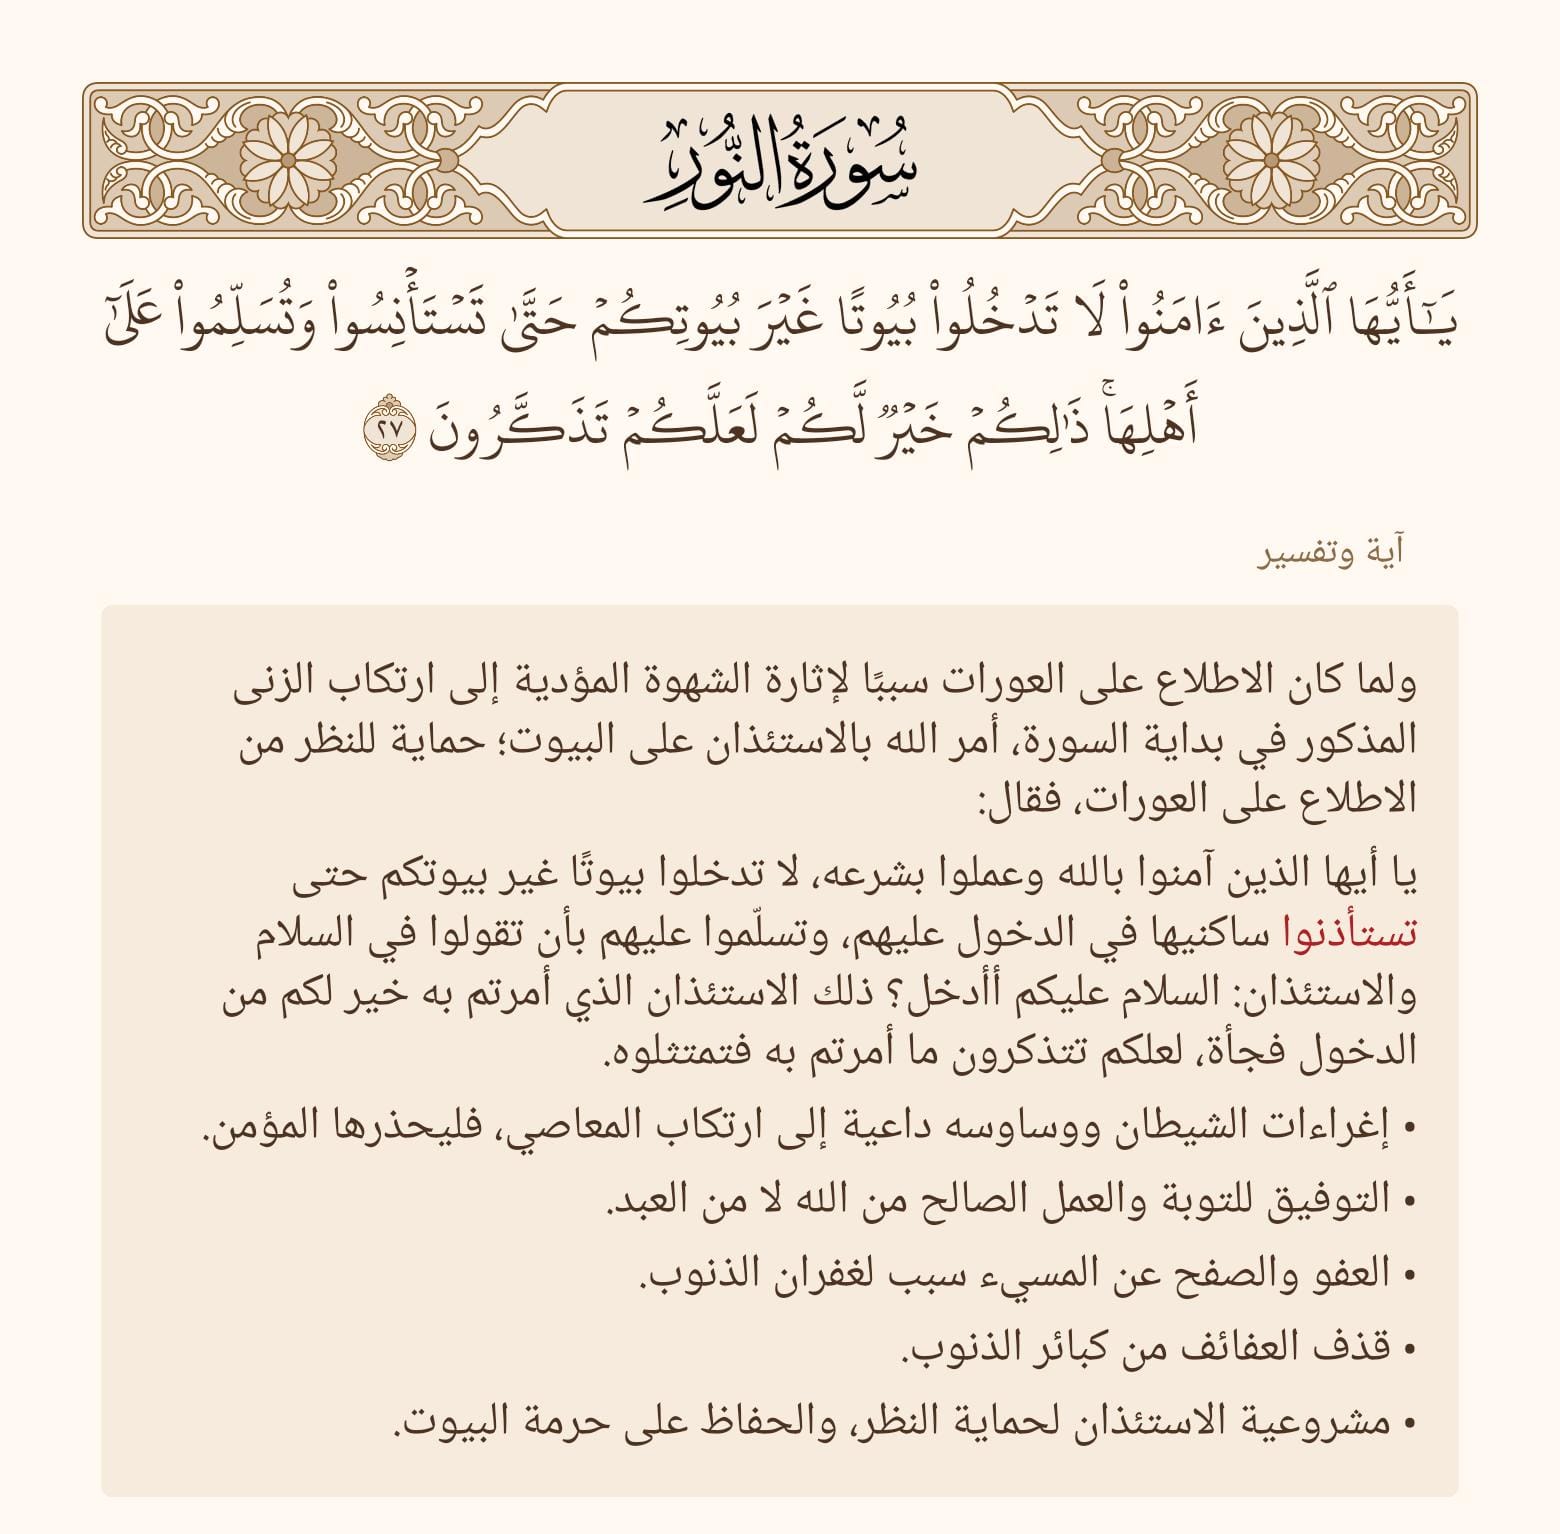 سُورَةُ النُّورِ
يَـٰٓأَيُّهَا ٱلَّذِينَ ءَامَنُوا۟ لَا تَدۡخُلُوا۟ بُيُوتًا غَيۡرَ بُيُوتِكُمۡ حَتَّىٰ تَسۡتَأۡنِسُوا۟ وَتُسَلِّمُوا۟ عَلَىٰٓ
أَهۡلِهَاۚ ذَٰلِكُمۡ خَيۡرٌ لَّكُمۡ لَعَلَّكُمۡ تَذَكَّرُونَ ٢٧
آية وتفسير
ولما كان الاطلاع على العورات سببًا لإثارة الشهوة المؤدية إلى ارتكاب الزنى
المذكور في بداية السورة، أمر الله بالاستئذان على البيوت؛ حماية للنظر من
الاطلاع على العورات، فقال:
يا أيها الذين آمنوا بالله وعملوا بشرعه، لا تدخلوا بيوتًا غير بيوتكم حتى
تستأذنوا ساكنيها في الدخول عليهم، وتسلّموا عليهم بأن تقولوا في السلام
والاستئذان: السلام عليكم أأدخل؟ ذلك الاستئذان الذي أمرتم به خير لكم من
الدخول فجأة، لعلكم تتذكرون ما أمرتم به فتمتثلوه.
• إغراءات الشيطان ووساوسه داعية إلى ارتكاب المعاصي، فليحذرها المؤمن.
• التوفيق للتوبة والعمل الصالح من الله لا من العبد.
• العفو والصفح عن المسيء سبب لغفران الذنوب.
• قذف العفائف من كبائر الذنوب.
• مشروعية الاستئذان لحماية النظر، والحفاظ على حرمة البيوت.